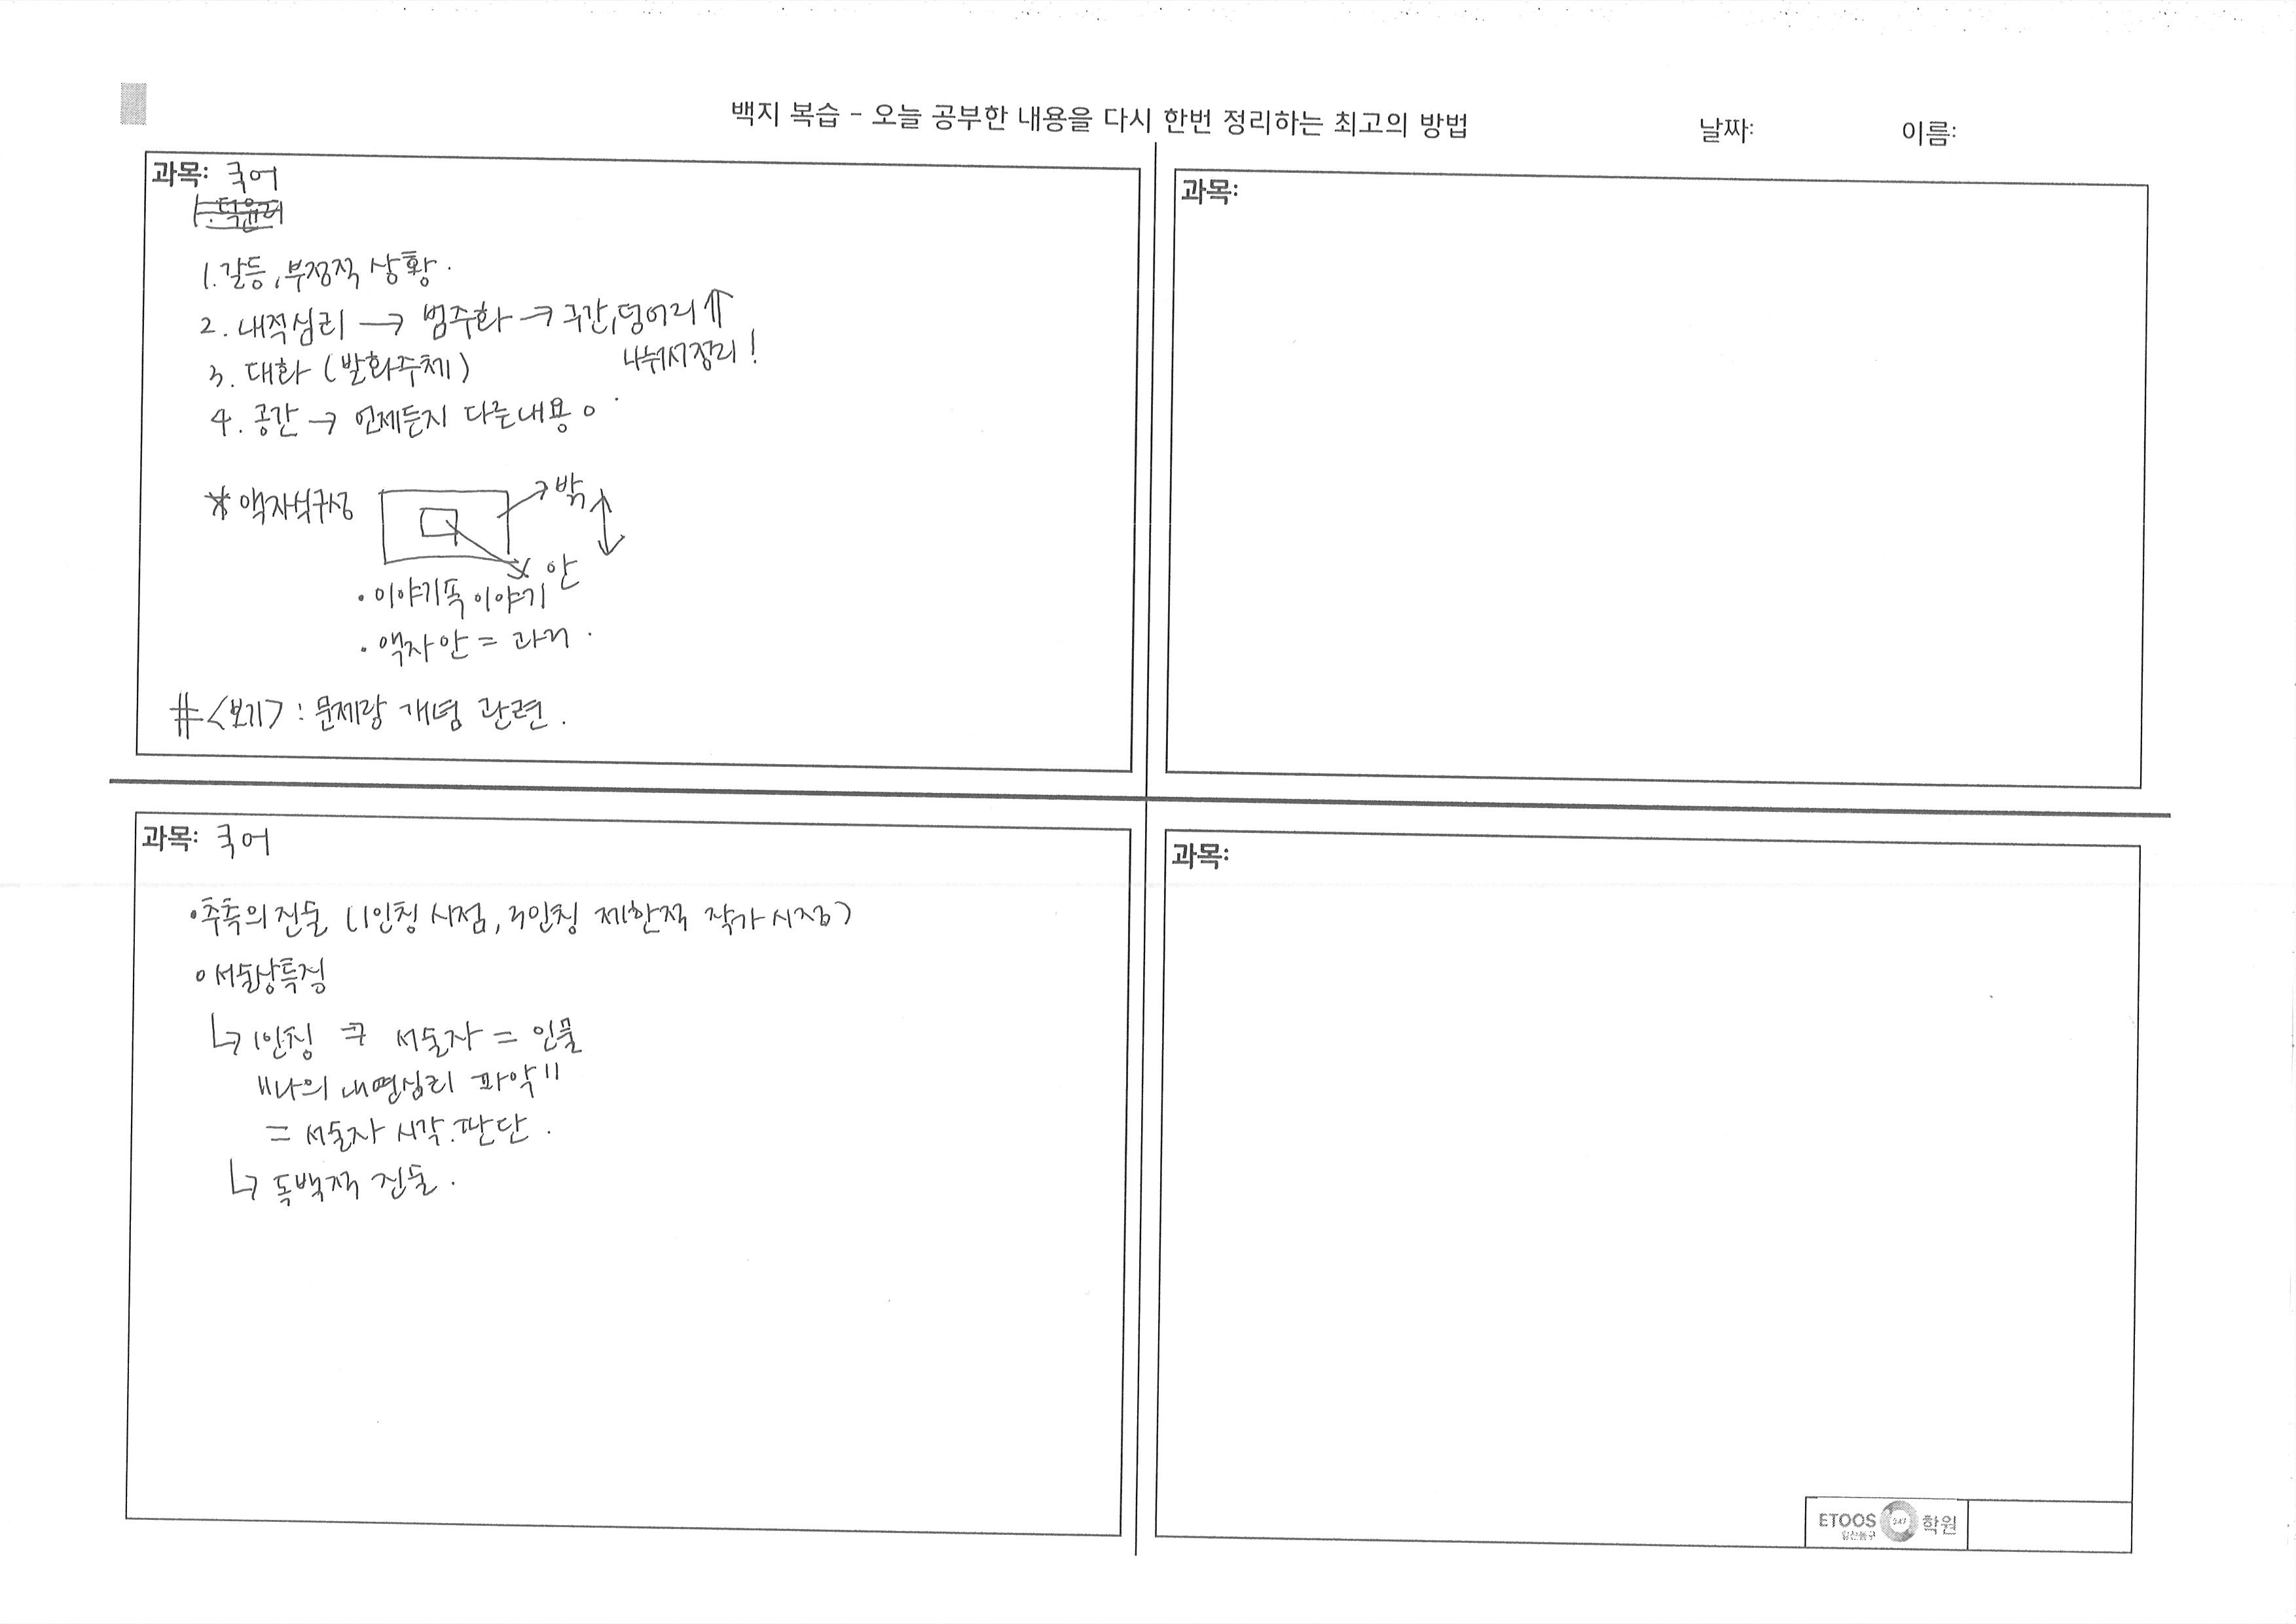 백지 복습 - 오늘 공부한 내용을 다시 한번 정리하는 최고의 방법
날짜:
이름:
과목: 국어
1. 갈등, 부정적 상황.
2. 내적심리 → 범주화 → 구간, 덩어리 ⇑
나눠서정리!
3. 대화 (발화주체)
4. 공간 → 언제든지 다른내용 o
* 액자식구성
밖
안
• 이야기 속 이야기
• 액자 안 = 과거.
# <보기> : 문제랑 개념 관련.
과목:
과목: 국어
• 추측의 진술 (1인칭 시점, 3인칭 제한적 작가 시점)
• 서술상특징
↳ 1인칭 → 서술자 = 인물
"나의 내면심리 파악"
= 서술자 시각.판단.
↳ 독백적 진술.
과목:
ETOOS 247 학원